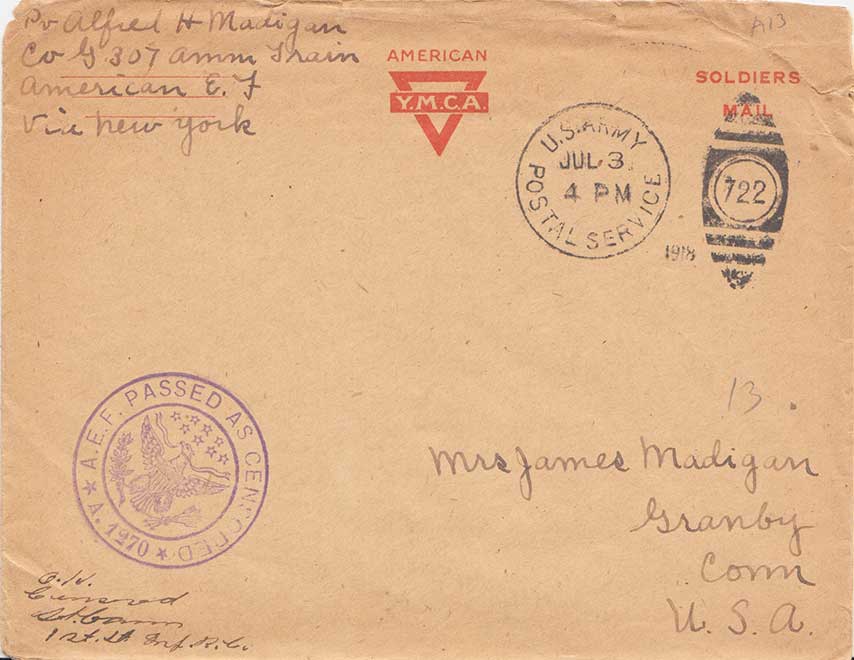 Pv Alfred H Madigan
Co G 307 Amm Train
American E. F
Via New York
AMERICAN
Y.M.C.A.
SOLDIERS
MAIL
A13
U.S. ARMY
POSTAL SERVICE
JUL 3
4 PM
1918
722
13
A.E.F. PASSED AS CENSORED
A. 1270
Mrs James Madigan
Granby
Conn
U. S. A.
O.K.
Censored
1st. Lt Inf. R.C.